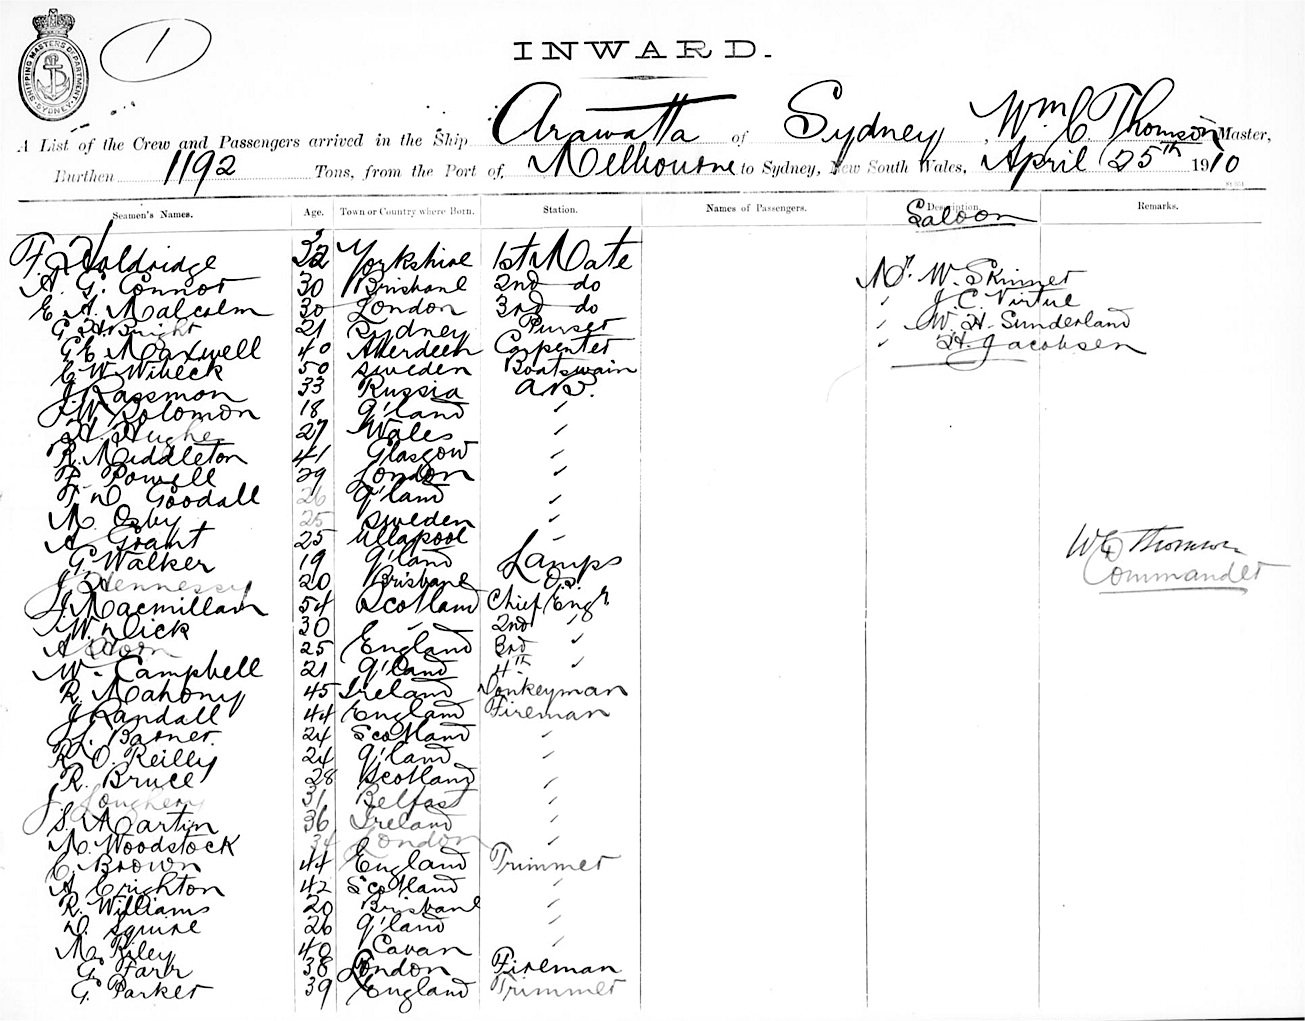 SHIPPING MASTERS DEPARTMENT SYDNEY
1
INWARD.
A List of the Crew and Passengers arrived in the Ship Arawatta of Sydney, Wm C. Thomson Master,
Burthen 1192 Tons, from the Port of Melbourne to Sydney, New South Wales, April 25th 1910
Seamen's Names. Age. Town or Country where Born. Station. Names of Passengers. Description. Remarks.
Saloon
F. Holdridge 32 Yorkshire 1st Mate
A. G. Connor 30 Brisbane 2nd do Mr. W. Skinner
E. A. Malcolm 30 London 3rd do " J. C. Virtue
G. H. Bright 21 Sydney Purser " W. H. Sunderland
G E Maxwell 40 Aberdeen Carpenter " H. Jacobsen
C W Wibeck 50 Sweden Boatswain
J. Rassmon 33 Russia A.B.
J. W. Solomon 18 Q'land "
H. Hughes 27 Wales "
R. Middleton 41 Glasgow "
F. Powell 29 London "
T. D. Goodall 26 Q'land "
N. Osby 25 Sweden "
A. Grant 25 Ullapool "
G. Walker 19 Q'land Lamps
J. Hennessy 20 Brisbane O.S.
J. Macmillan 54 Scotland Chief Engr
W. Dick 30 " 2nd "
A. Horn 25 England 3rd "
W. Campbell 21 Q'land 4th "
R. Mahony 45 Ireland Donkeyman
J. Randall 44 England Fireman
J. Barner 24 Scotland "
R. O. Reilly 24 Q'land "
R. Bruce 28 Scotland "
J. Loughery 31 Belfast "
S. Martin 36 Ireland "
N. Woodstock 34 London "
C. Brown 44 England Trimmer
A. Crighton 42 Scotland "
R. Williams 20 Brisbane "
D. Squire 26 Q'land "
M. Riley 40 Cavan "
G. Farr 38 London Fireman
G. Parker 39 England Trimmer
W C Thomson
Commander